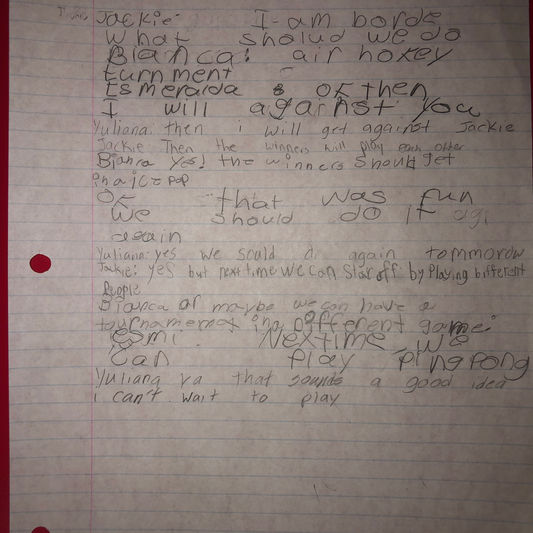 Jackie: I am bords
What sholud we do
Bianca: air hokey
turnment
Esmeralda : ok then
I will against you
Yuliana: then i will get against Jackie
Jackie Then the winners will play each other
Bianca yes! the winners should get
pop
OK that was fun
We should do it agi
again
Yuliana: yes we sould do again tommorow
Jackie: yes but next time we can star off by playing different
people
Bianca or maybe we can have a
tournament in a different game.
Esmi: Nextime we
Can play pingpong
Yuliana ya that sounds a good idea
i can't wait to play